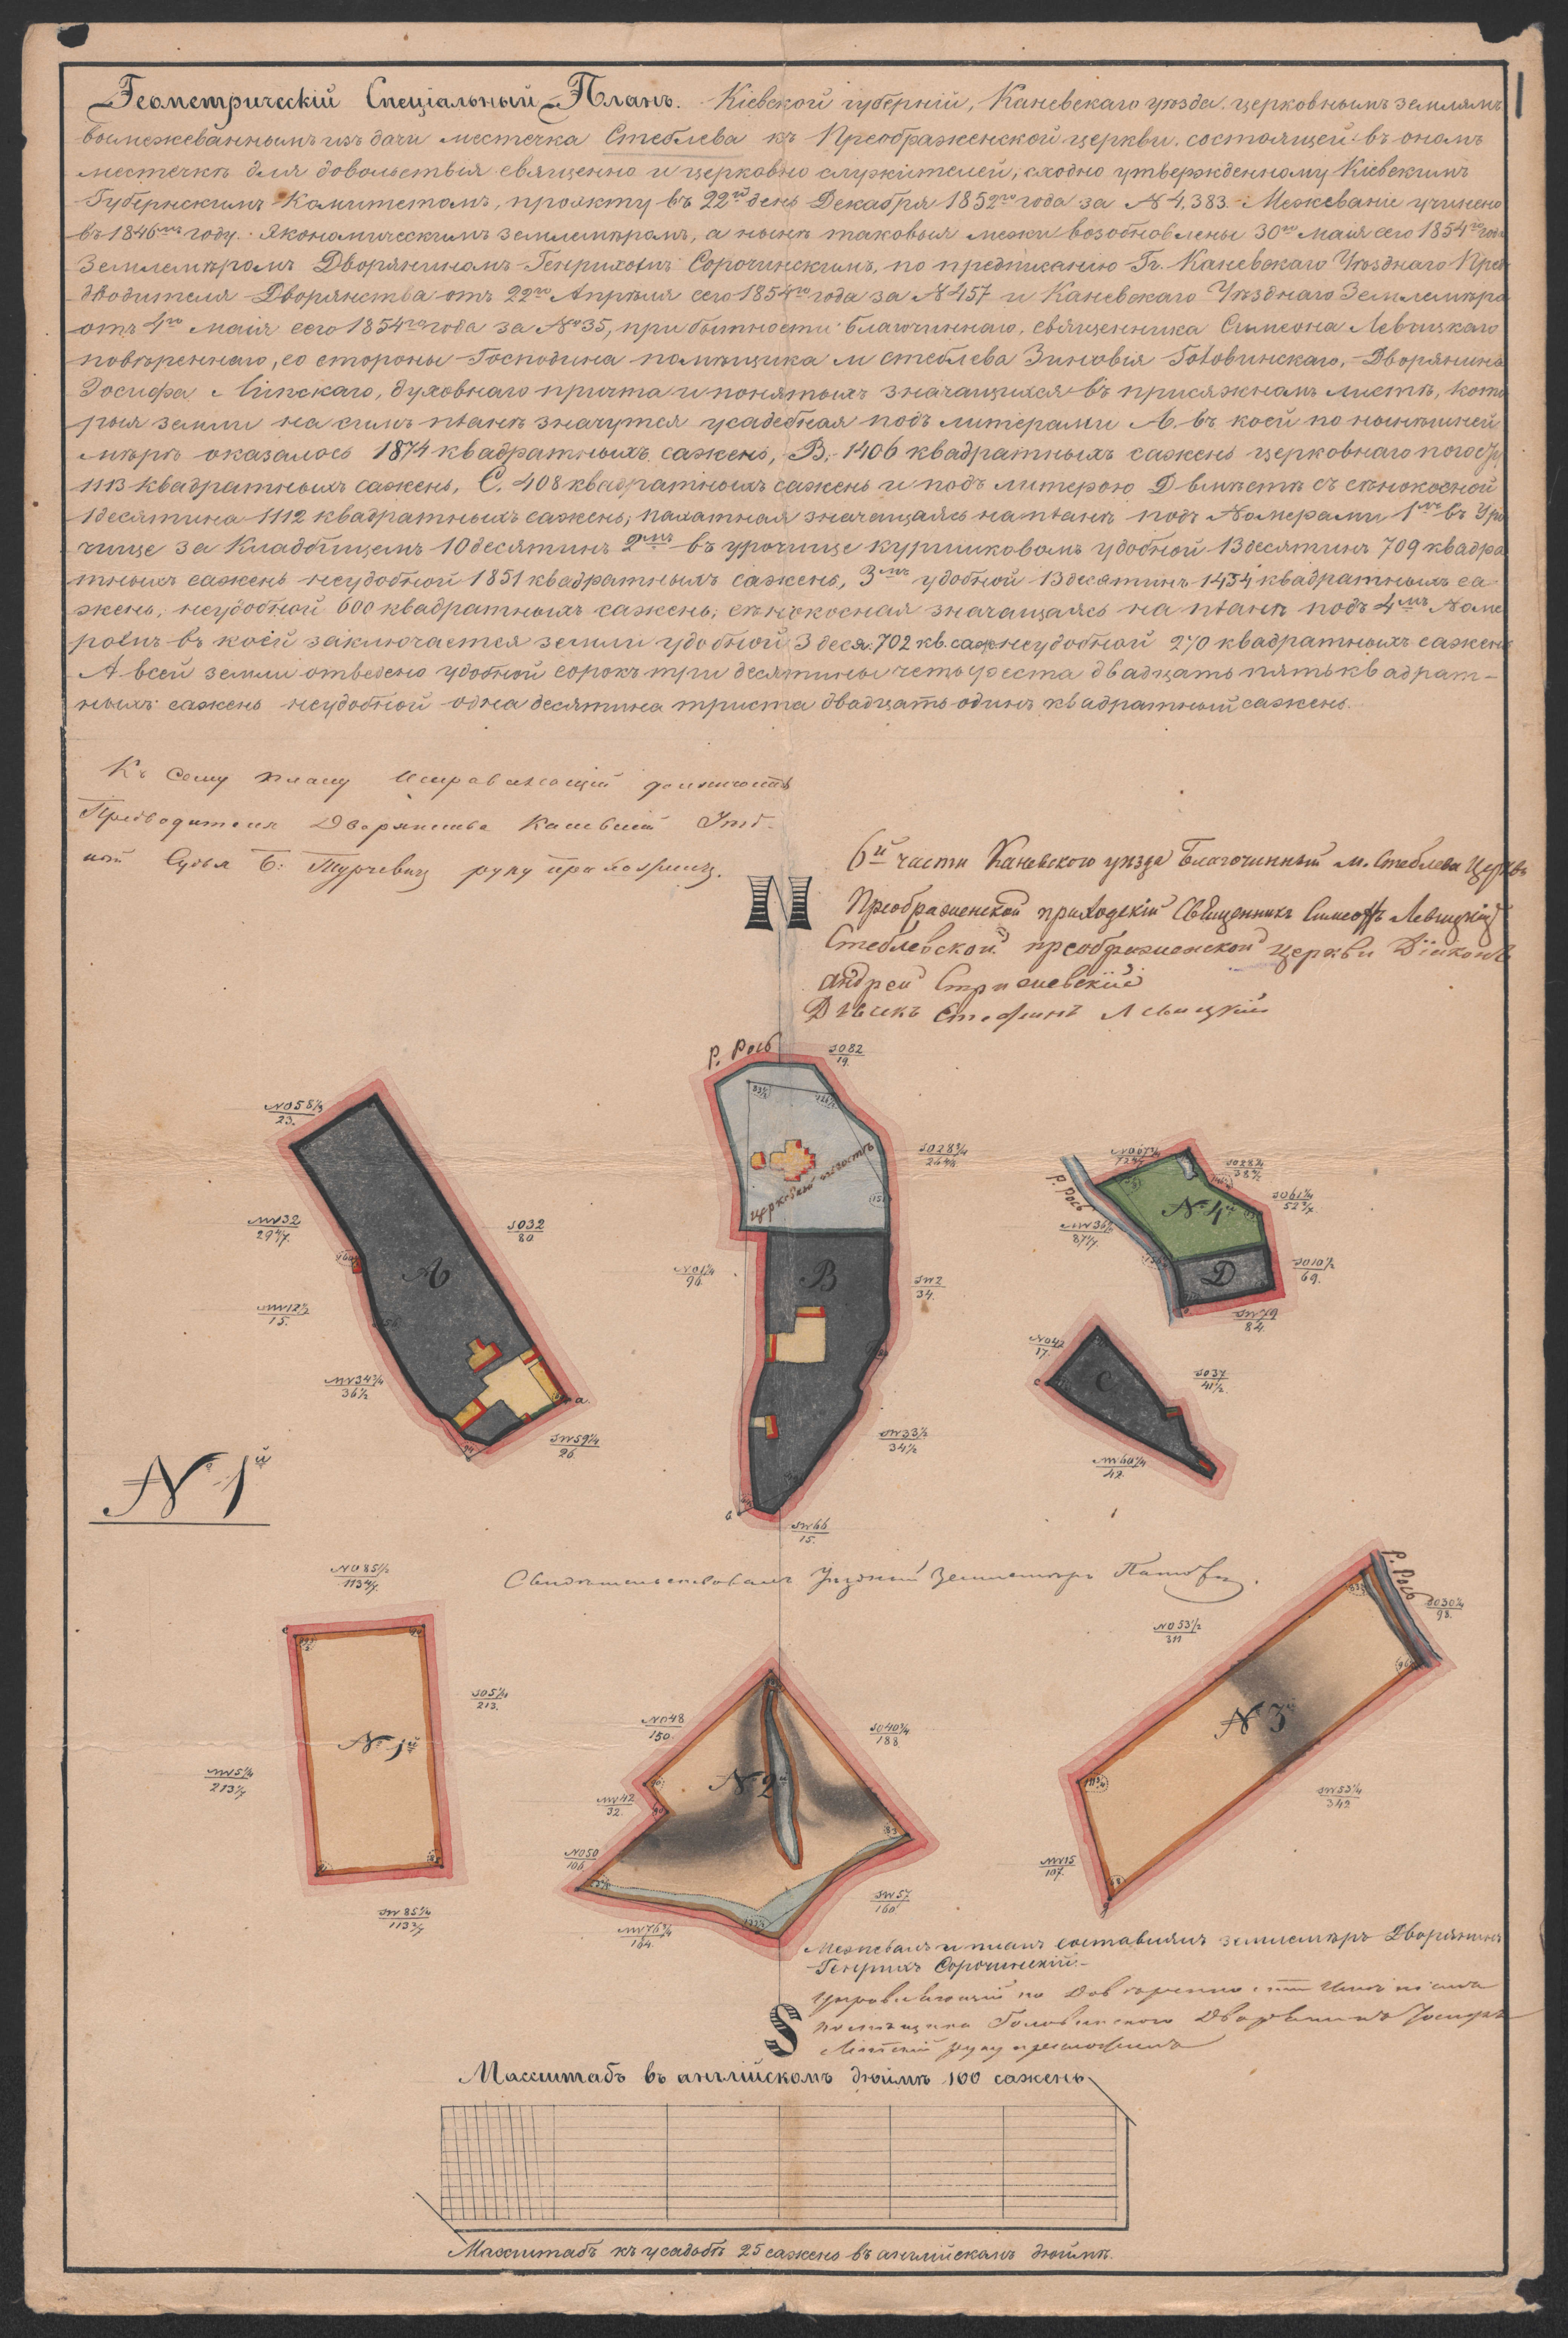 Геометрическій Спеціальный Планъ. Кіевской губерніи, Каневскаго уѣзда, церковнымъ землямъ
вымежеваннымъ изъ дачи местечка Стеблева къ Преображенской церкви, состоящей въ ономъ
местечкѣ для довольствія священно и церковно служителей, сходно утвержденному Кіевскимъ
Губернскимъ Комитетомъ, проэкту въ 22й день Декабря 1852го года за № 4,383. Межеваніе учинено
въ 1846мъ году. Экономическимъ землемѣромъ, а нынѣ таковыя межи возобновлены 30го Маія сего 1854го года
Землемѣромъ Дворяниномъ Генрихомъ Сорочинскимъ, по предписанію Гг. Каневскаго Уѣзднаго Пред
дводителя Дворянства отъ 22го Апрѣля сего 1854го года за № 457 и Каневскаго Уѣзднаго Землемѣра
отъ 4го Маія сего 1854го года за № 35, при бытности Благочиннаго, священника Симеона Левицкаго
повѣреннаго, со стороны Господина помѣщика м Стеблева Зиновія Головинскаго, Дворянина
Іосифа Липскаго, духовнаго причта и понятыхъ значащихся въ присяжномъ листѣ, кото
рыя земли на симъ планѣ значутся усадебная подъ литерами А. въ коей по нынѣшней
мѣрѣ оказалось 1874 квадратныхъ сажень, В, 1406 квадратныхъ сажень церковнаго погос
1113 квадратныхъ сажень, С. 408 квадратныхъ сажень и подъ литерою D вмѣстѣ съ сѣнокосной
1 десятина 1112 квадратныхъ сажень; пахатная значащаясь на планѣ подъ Номерами 1мъ въ Уро
чище за Кладбищемъ 10 десятинъ 2мъ въ урочище куришковомъ удобной 13 десятинъ 709 квадра
тныхъ сажень неудобной 1851 квадратныхъ сажень, 3мъ удобной 13 десятинъ 1434 квадратныхъ са
жень, неудобной 600 квадратныхъ сажень; сѣнокосная значащаясь на планѣ подъ 4мъ Номе
ромъ въ коей заключается земли удобной 3 деся. 702 кв. саж неудобной 270 квадратныхъ сажень
А всей земли отведено удобной сорокъ три десятины четыреста двадцать пять квадрат-
ныхъ сажень неудобной одна десятина триста двадцать одинъ квадратный сажень.
Къ сему плану Исправляющій должность
Предводителя Дворянства Каневскій Уѣзд-
ный Судья Б. Турчевич руку приложилъ.
6й части Каневского уѣзда Благочинный м. Стеблева Церкви
Преображенской приходскій Священникъ Симеонъ Левицкій
Стеблевской преображенской церкви Діяконъ
андрей Стрижевскій
Дьячекъ Стефанъ Левицкій
N
Р. Рось
SO82
19.
NO58 1/3
23.
SO28 3/4
26 4/8
Церковный погостъ
Р. Рось
№ 4й
SO61 3/4
52 3/7
NW32
29 4/7.
SO32
80
А
NO1 3/4
96.
В
SW2
34.
D
SO10 1/2
69.
SW79
84
NW12 1/2
15.
NO42
17.
С
SO37
41 1/2.
NW34 3/4
36 1/2
а.
SW59 3/4
26.
SW33 1/2
34 1/2
NW60 3/4
42.
№ 1й
SW66
15.
NO85 1/2
113 4/7.
Свидѣтельствовалъ Уѣздный Землемѣръ
Р. Рось
SO30 3/4
98.
NO53 1/2
311
SO5 1/4
213.
№ 1й
NO48
150.
SO40 3/4
188
№ 2й
№ 3й
NW5 1/4
213 1/7
NW42
32.
SW53 1/4
342
NO50
106.
NW15
107.
SW85 1/4
113 3/7
SW57
160
NW76 3/4
104.
Межевалъ и планъ составлялъ землемѣръ Дворянинъ
Генрихъ Сорочинскій.
Управляющій по Довѣренности Имѣніемъ
помѣщика Головинского Дворянинъ Іосифъ
Липскій руку приложилъ
S
Масштабъ въ англійскомъ дюймѣ 100 сажень
Масштабъ къ усадьбѣ 25 сажень въ англійскомъ дюймѣ.